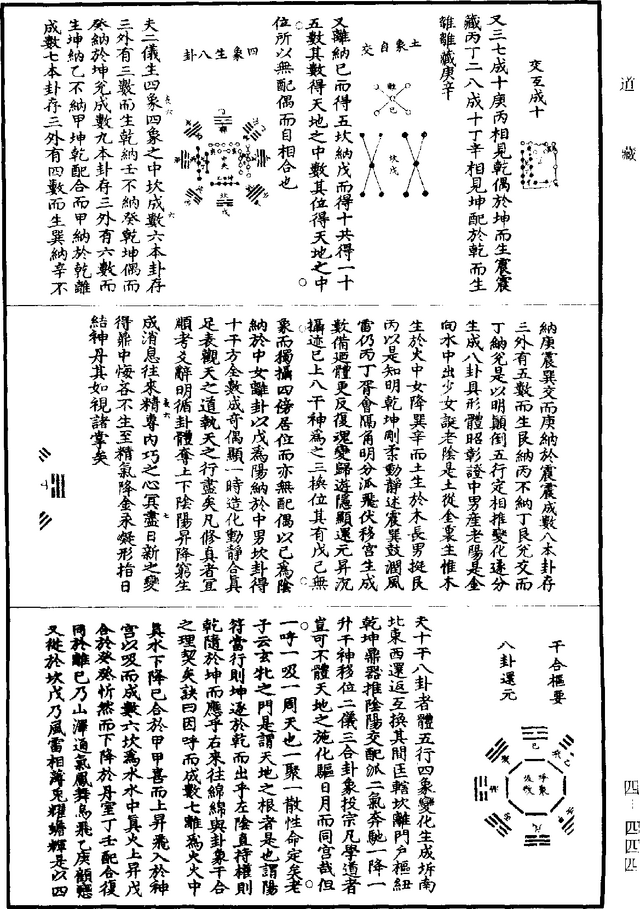 道藏
交互成十
又三七成十庚丙相見乾偶於坤而生震震
藏丙丁二八成十丁辛相見坤配於乾而生
離離藏庚辛
土象自交
離己
坎戊
又離納已而得五坎納戊而得十共得一十
五數其數得天地之中數其位得天地之中
位所以無配偶而自相合也
四象生八卦
夫二儀生四象四象之中坎成數六本卦存
三外有三數而生乾納壬不納癸乾坤偶而
癸納於坤兌成數九本卦存三外有六數而
生坤納乙不納甲坤乾配合而甲納於乾離
成數七本卦存三外有四數而生巽納辛不
納庚震巽交而庚納於震震成數八本卦存
三外有五數而生艮納丙不納丁艮兌交而
丁納兌是以明顛倒五行定相推變化遂分
生成八卦具形體昭彰證中男產老陽是金
向水中出少女誕老陰是土從金裏生惟木
生於火中女降巽辛而土生於木長男挺艮
丙以是知明乾坤剛柔動靜述震巽鼓潤風
雷仍丙丁胥會隔角明分派飛伏移宮生成
數備廼體更反復魂變歸遊隱顯還元昇沉
攝迹已上八干神為之三換位其有戊已無
象而獨攝四傍居位而亦無配偶以已為陰
納於中女離卦以戊為陽納於中男坎卦得
十干方全數成奇偶顯一時造化動靜合真
足表觀天之道執天之行盡矣凡修真者宜
順考爻辭明循卦體奪上下陰陽昇降窮生
成消息往來精專內巧之心冥盡日新之變
得鼎中悔吝不生至精氣降金汞凝形指日
結神丹其如視諸掌矣
干合樞要
八卦還元
夫十干八卦者體五行四象變化生成圻南
北東西還返互換其間匡轄坎離門戶樞紐
乾坤鼎器推陰陽交配派二氣奔馳一降一
升干神移位二儀三合卦象投宗凡學道者
豈可不體天地之施化驅日月而同宮哉但
一呼一吸一周天也一聚一散性命定矣老
子云玄牝之門是謂天地之根者是也謂陽
符當行則坤逐於乾而出乎左陰直持權則
乾隨於坤而應乎右來往綿綿與卦象干合
之理契矣訣曰因呼而成數七離為火火中
真水下降已合於甲甲喜而上昇飛入於神
宮以吸而成數六坎為水水中真火上昇戊
合於癸癸忻然而下降於丹室丁壬配合復
同於離已乃山澤通氣鳳舞鳥飛乙庚顧戀
又從於坎戊乃風雷相薄兎耀蟾輝是以四
四—四四四